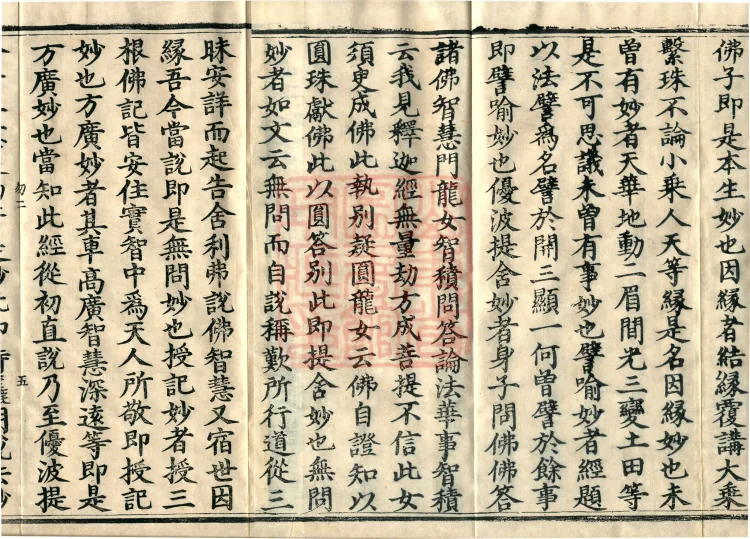 佛子即是本生妙也因緣者結緣覆講大乘
繫珠不論小乘人天等緣是名因緣妙也未
曾有妙者天華地動二眉間光三變土田等
是不可思議未曾有事妙也譬喻妙者經題
以法譬爲名譬於開三顯一何曾譬於餘事
即譬喻妙也優波提舍妙者身子問佛佛答
諸佛智慧門龍女智積問答論法華事智積
云我見釋迦經無量劫方成菩提不信此女
須臾成佛此執別疑圓龍女云佛自證知以
圓珠獻佛此以圓答別此即提舍妙也無問
妙者如文云無問而自說稱歎所行道從三
昧安詳而起告舍利弗說佛智慧又宿世因
緣吾今當說即是無問妙也授記妙者授三
根佛記皆安住實智中爲天人所敬即授記
妙也方廣妙者其車高廣智慧深遠等即是
万廣妙也當知此經從初直說乃至優波提
勿二
五